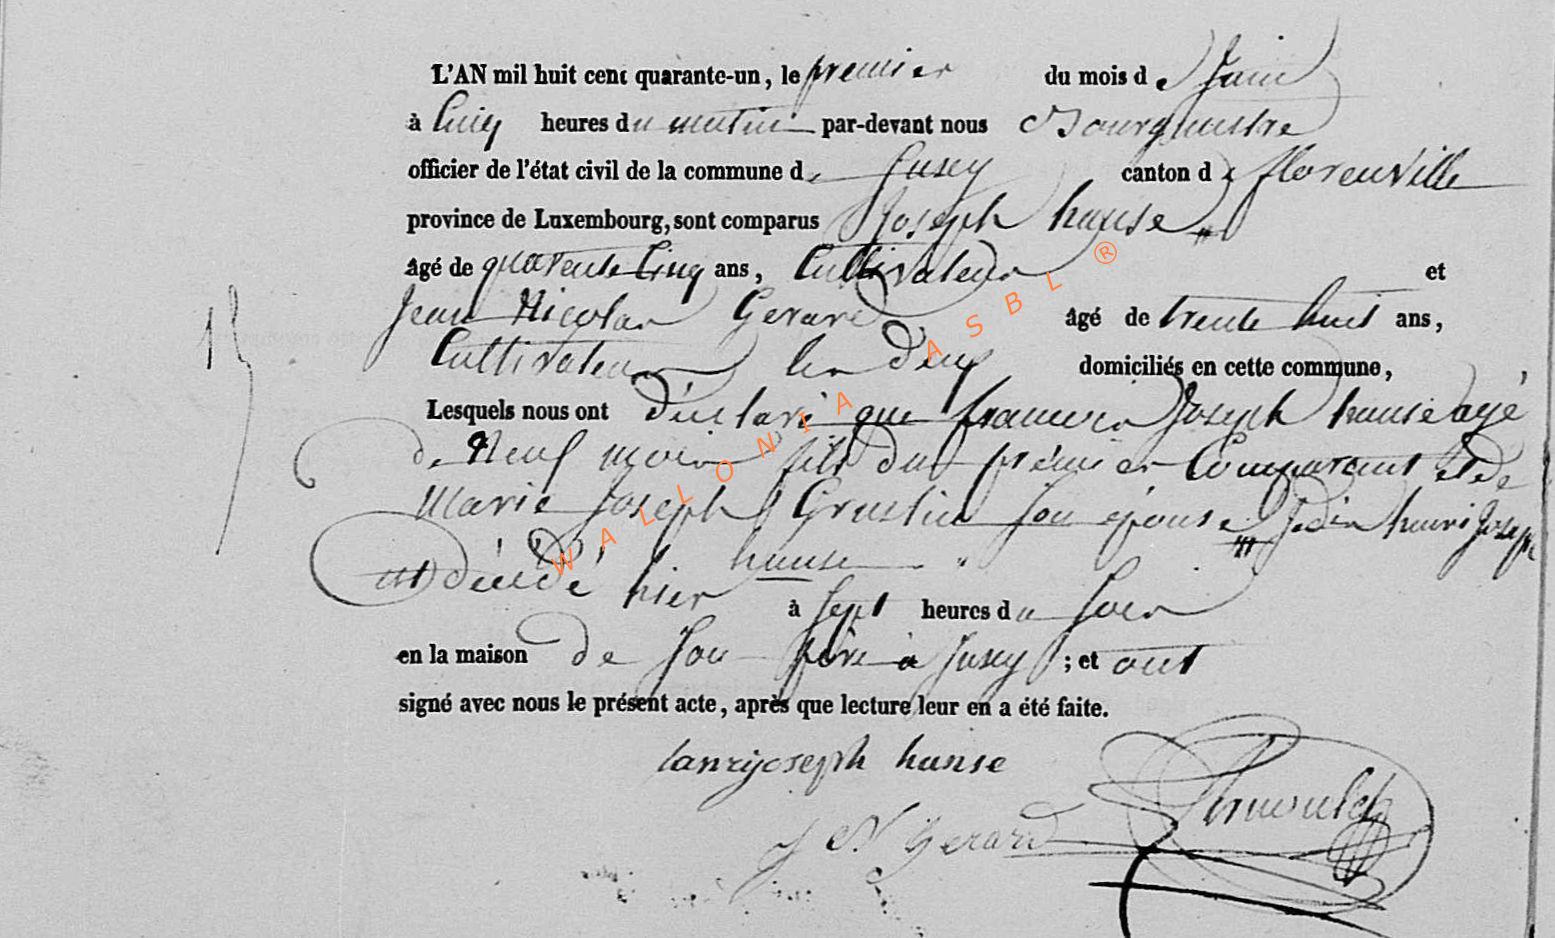 L'AN mil huit cent quarante-un, le premier du mois de Juin
à Cinq heures du matin par-devant nous Bourguestre
officier de l'état civil de la commune de Jusey canton de florenville
province de Luxembourg, sont comparus Joseph hanse
Agé de quarente Cinq ans, Cultivateur et
Jean Nicolas Gerard âgé de trente huit ans,
Cultivateur les deux domiciliés en cette commune,
Lesquels nous ont déclaré que francois Joseph hanse agé
de Neuf mois fils du premier Comparant et de
Marie Joseph son épouse henri Joseph
hanse
est décédé hier à sept heures du soir
en la maison de son père à Jusey ; et ont
signé avec nous le présent acte, après que lecture leur en a été faite.
hanse
J N Gerard
13
WALLONIA ASBL ®